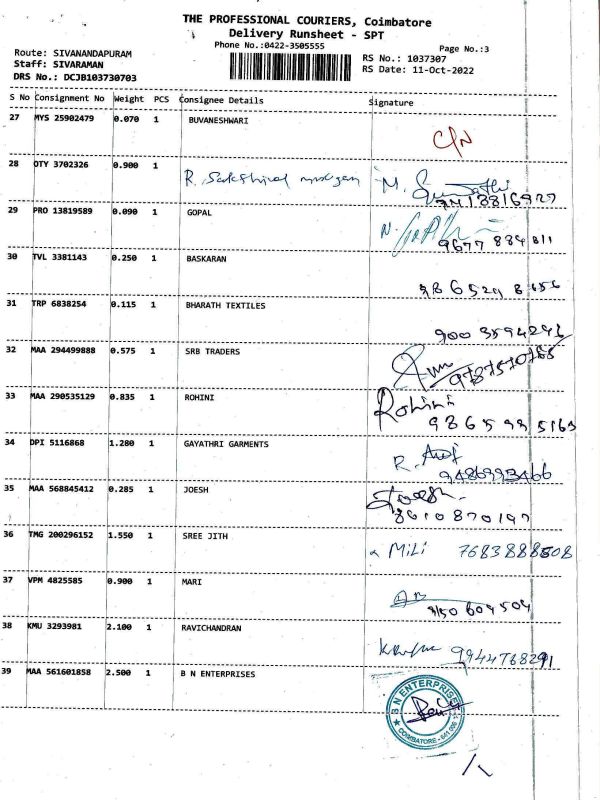 THE PROFESSIONAL COURIERS, Coimbatore
Delivery Runsheet - SPT
Phone No.:0422-3505555
Page No.:3
Route: SIVANANDAPURAM
Staff: SIVARAMAN
DRS No.: DCJB103730703
RS No.: 1037307
RS Date: 11-Oct-2022
S No Consignment No Weight PCS Consignee Details Signature
27 MYS 25902479 0.070 1 BUVANESHWARI C/N
28 OTY 3702326 0.900 1 R. M.
29 PRO 13819589 0.090 1 GOPAL N.
9677 884 811
30 TVL 3381143 0.250 1 BASKARAN
31 TRP 6838254 0.115 1 BHARATH TEXTILES
900 3594296
32 MAA 294499888 0.575 1 SRB TRADERS
9787570765
33 MAA 290535129 0.835 1 ROHINI Rohini
98659 95163
34 DPI 5116868 1.280 1 GAYATHRI GARMENTS R.
9486993466
35 MAA 568845412 0.285 1 JOESH Joesh.
8610870197
36 TMG 200296152 1.550 1 SREE JITH MiLi 7683888508
37 VPM 4825585 0.900 1 MARI
38 KMU 3293981 2.100 1 RAVICHANDRAN
9944768291
39 MAA 561601858 2.500 1 B N ENTERPRISES
B N ENTERPRISES
COIMBATORE - 641 006